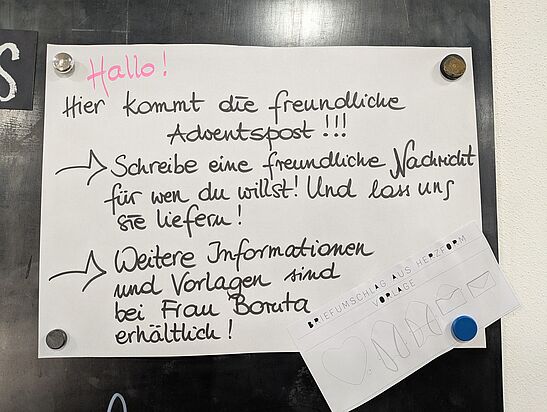 S
Hallo!
Hier kommt die freundliche
Adventspost!!!
→ Schreibe eine freundliche Nachricht
für wen du willst! Und lass uns
sie liefern!
→ Weitere Informationen
und Vorlagen sind
bei Frau Boruta
erhältlich!
BRIEFUMSCHLAG AUS HERZFORM
VORLAGE